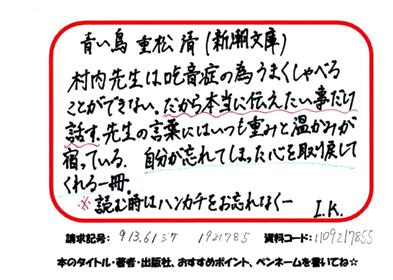 青い鳥 重松 清(新潮文庫)
村内先生は吃音症の為うまくしゃべる
ことができない。だから本当に伝えたい事だけ
話す。先生の言葉にはいつも重みと温かみが
宿っている。 自分が忘れてしまった心を取り戻して
くれる一冊。
※読む時はハンカチをお忘れなくー
I.K.
請求記号: 913.61シケ 1921785 資料コード:1109217855
本のタイトル・著者・出版社、おすすめポイント、ペンネームを書いてね☆